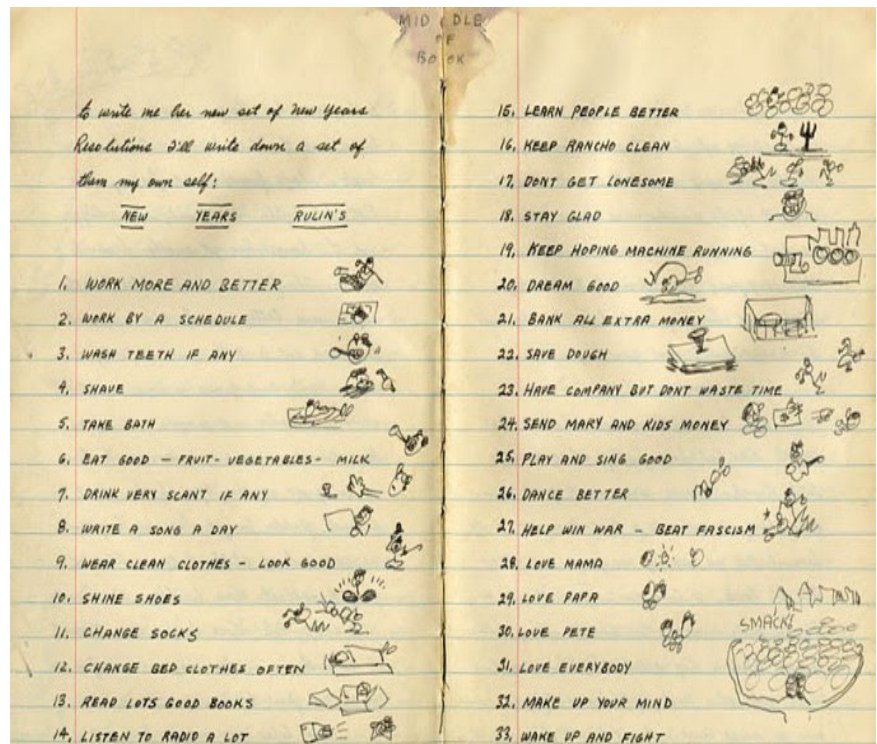 MIDDLE
OF
BOOK
to write me her new set of New Years
Resolutions I'll write down a set of
them my own self:
NEW YEARS RULIN'S
1. WORK MORE AND BETTER
2. WORK BY A SCHEDULE
3. WASH TEETH IF ANY
4. SHAVE
5. TAKE BATH
6. EAT GOOD — FRUIT - VEGETABLES - MILK
7. DRINK VERY SCANT IF ANY
8. WRITE A SONG A DAY
9. WEAR CLEAN CLOTHES - LOOK GOOD
10. SHINE SHOES
11. CHANGE SOCKS
12. CHANGE BED CLOTHES OFTEN
13. READ LOTS GOOD BOOKS
14. LISTEN TO RADIO A LOT
15. LEARN PEOPLE BETTER
16. KEEP RANCHO CLEAN
17. DONT GET LONESOME
18. STAY GLAD
19. KEEP HOPING MACHINE RUNNING
20. DREAM GOOD
21. BANK ALL EXTRA MONEY
22. SAVE DOUGH
23. HAVE COMPANY BUT DONT WASTE TIME
24. SEND MARY AND KIDS MONEY
25. PLAY AND SING GOOD
26. DANCE BETTER
27. HELP WIN WAR - BEAT FASCISM
28. LOVE MAMA
29. LOVE PAPA
30. LOVE PETE
SMACK!
31. LOVE EVERYBODY
32. MAKE UP YOUR MIND
33. WAKE UP AND FIGHT